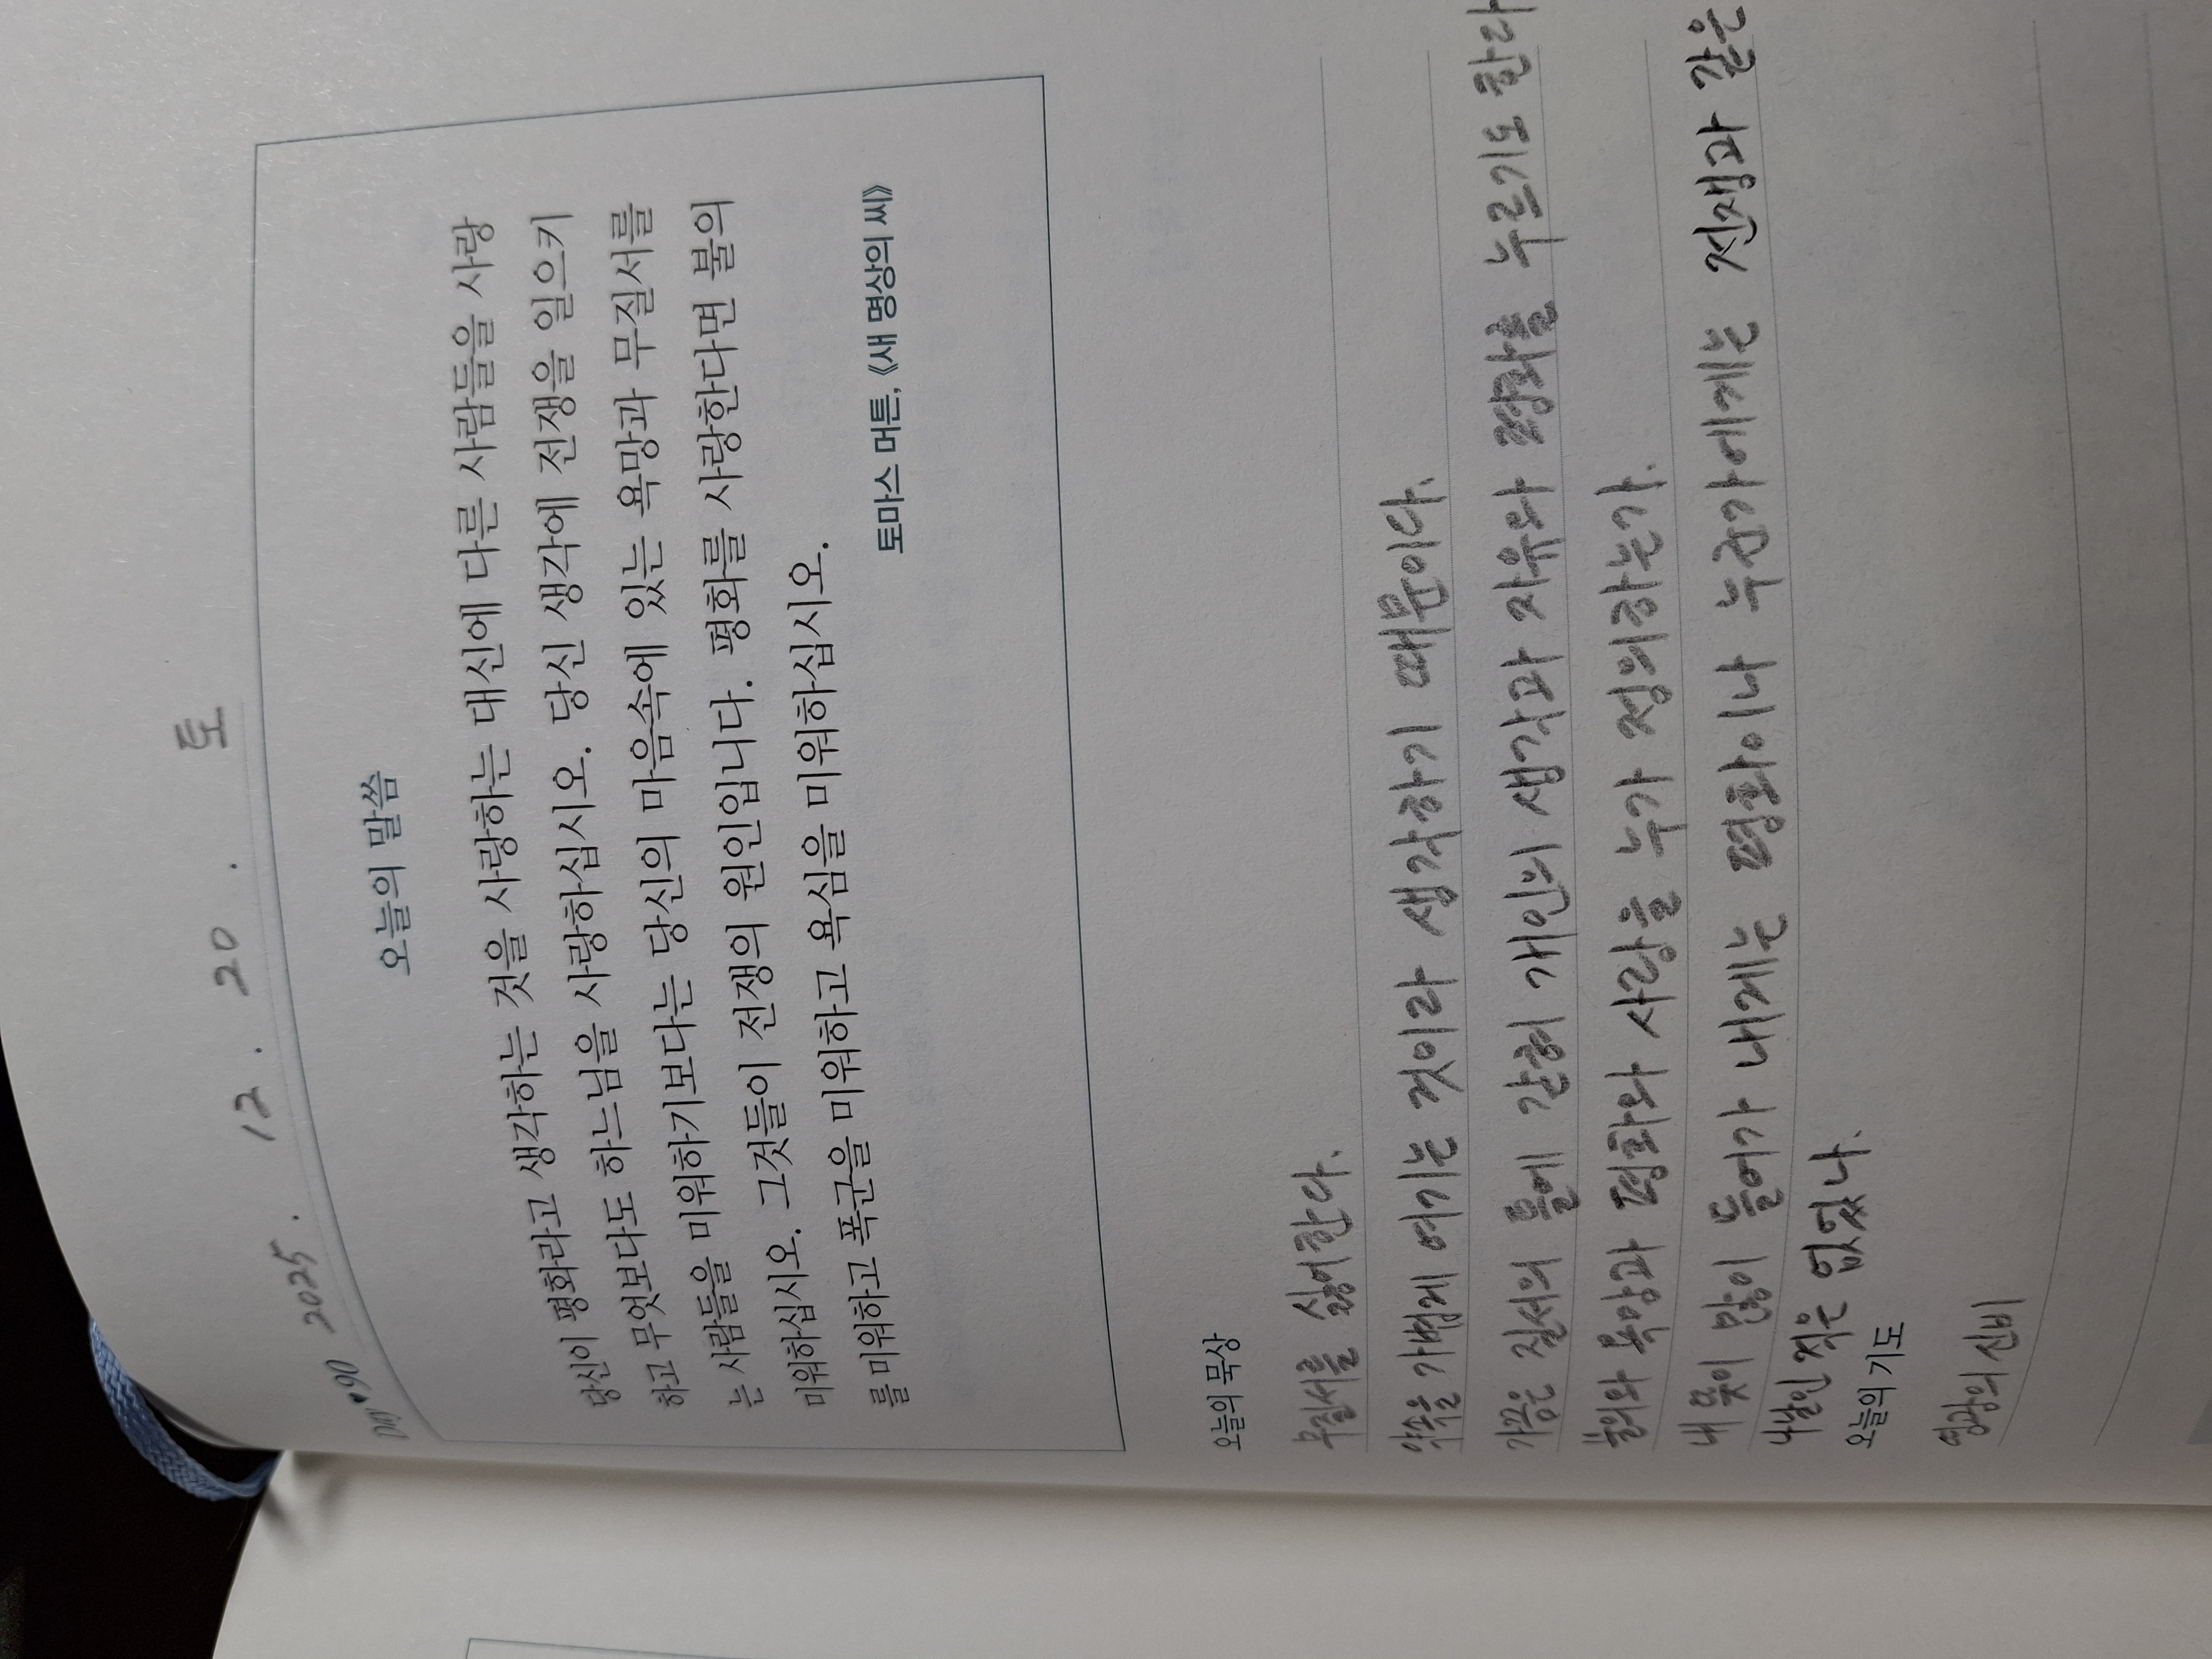 DAY 90 2025. 12. 20. 토
오늘의 말씀
당신이 평화라고 생각하는 것을 사랑하는 대신에 다른 사람들을 사랑
하고 무엇보다도 하느님을 사랑하십시오. 당신 생각에 전쟁을 일으키
는 사람들을 미워하기보다는 당신의 마음속에 있는 욕망과 무질서를
미워하십시오. 그것들이 전쟁의 원인입니다. 평화를 사랑한다면 불의
를 미워하고 폭군을 미워하고 욕심을 미워하십시오.
토마스 머튼, 《새 명상의 씨》
오늘의 묵상
무질서를 싫어한다.
약속을 가볍게 여기는 것이라 생각하기 때문이다.
가끔은 질서의 틀에 갇혀 개인의 생각과 자유와 평화를 누르기도 한다
불의와 욕망과 평화와 사랑을 누가 정의하는가.
내 뜻이 많이 들어가 내게는 평화이나 누군가에게는 전쟁과 같은
날인 적은 없었나.
오늘의 기도
영광의 신비